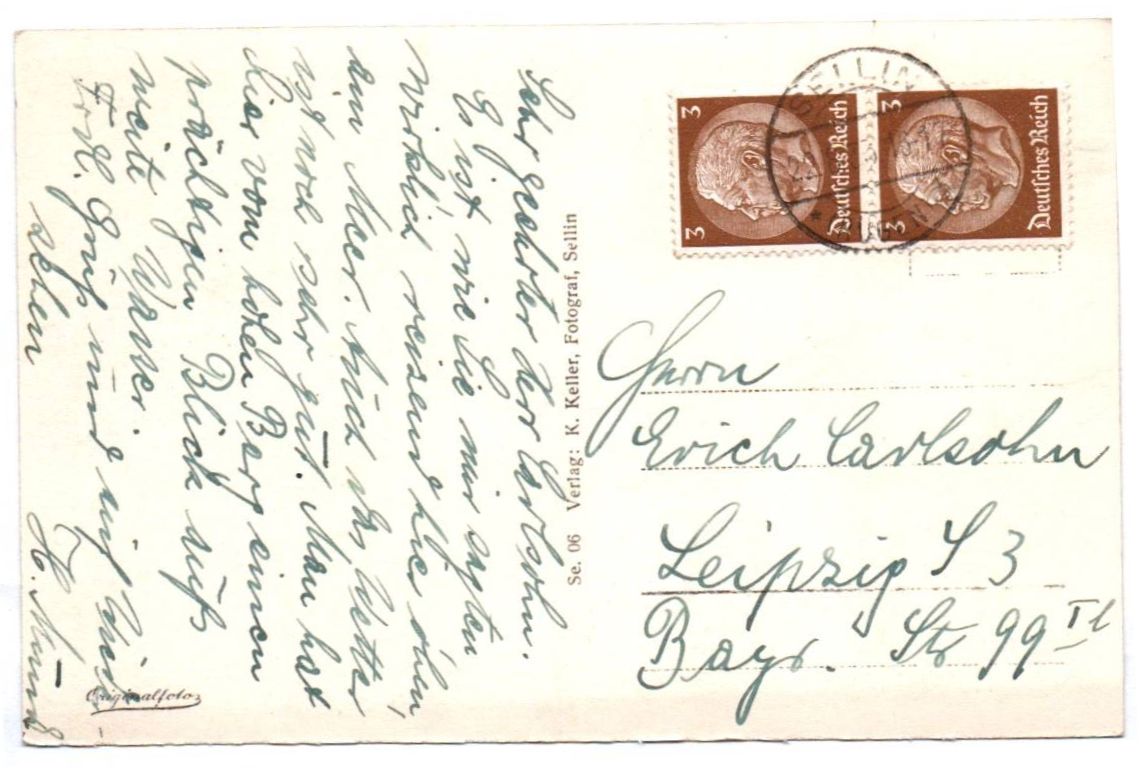 Sehr geehrter Herr Carlsohn.
Es ist, wie Sie mir sagten
wirklich reisend hier oben
am Meer. Auch das Wetter
ist noch sehr gut. Man hat
hier vom hohen Berg einen
prächtigen Blick aufs
weite Wasser.
Frdl. Gruß und auf Wieder-
sehen
Se. 06 Verlag: K. Keller, Fotograf, Sellin
Originalfoto
3 Deutsches Reich 3
3 Deutsches Reich 3
SELLIN
Herrn
Erich Carlsohn
Leipzig S 3
Bayr. Str 99 II l